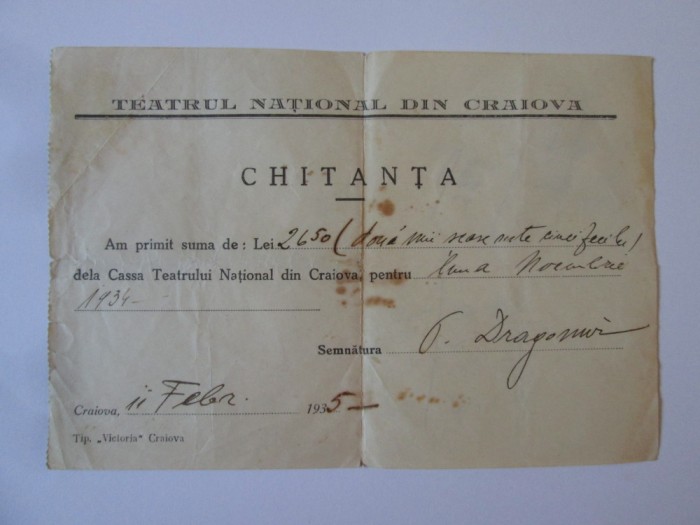 TEATRUL NAȚIONAL DIN CRAIOVA
CHITANȚA
Am primit suma de: Lei 2650 (două mii șease sute cinci zeci lei)
dela Cassa Teatrului Național din Craiova, pentru luna Noembrie
1934-
Semnătura P. Dragomir
Craiova, 11 Febr. 1935-
Tip. „Victoria” Craiova